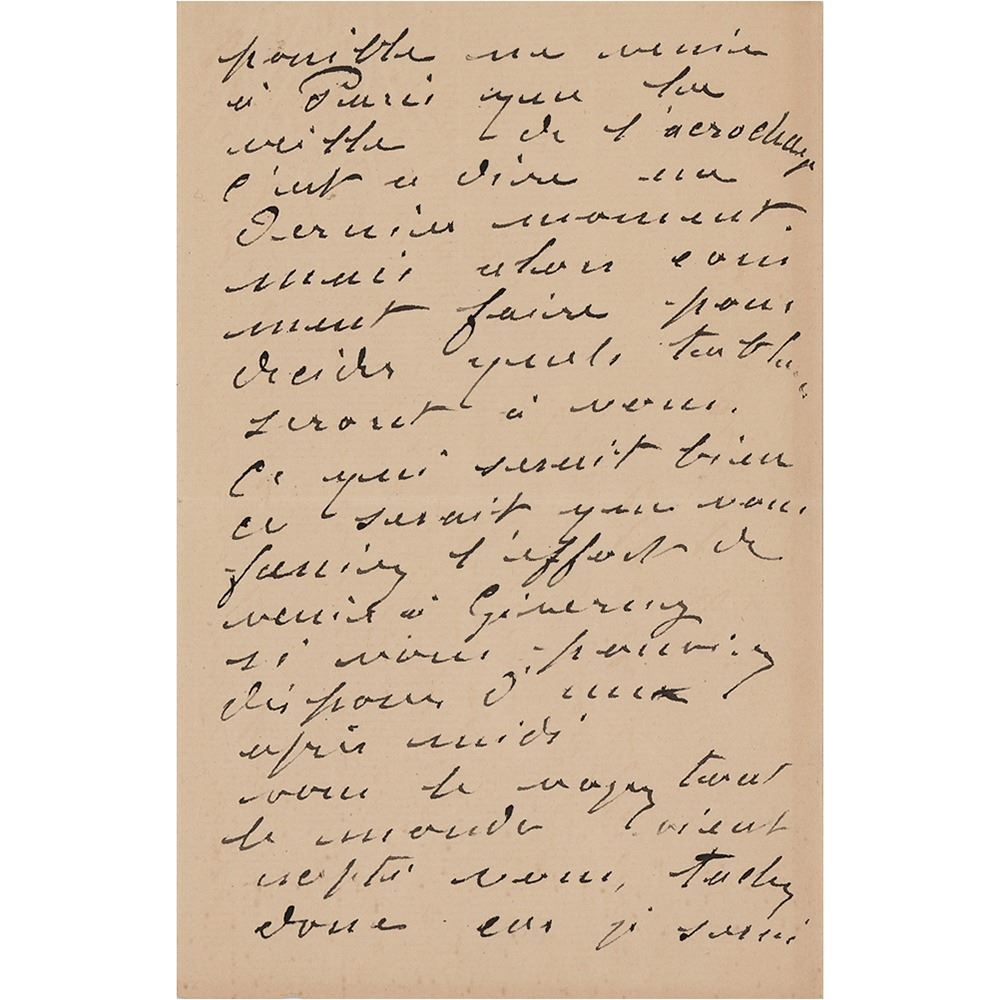 possible ne venir
à Paris que la
veille de l'acrochage
c'est a dire au
dernier moment
mais alors com
ment faire pour
decider quels tableaux
seront à vous.
Ce qui serait bien
ce serait que vous
fassiez l'effort de
venir à Giverny
si vous pouviez
disposer d'une
après midi
vous le voyez tout
le monde vient
excepté vous, tachez
donc car je serai